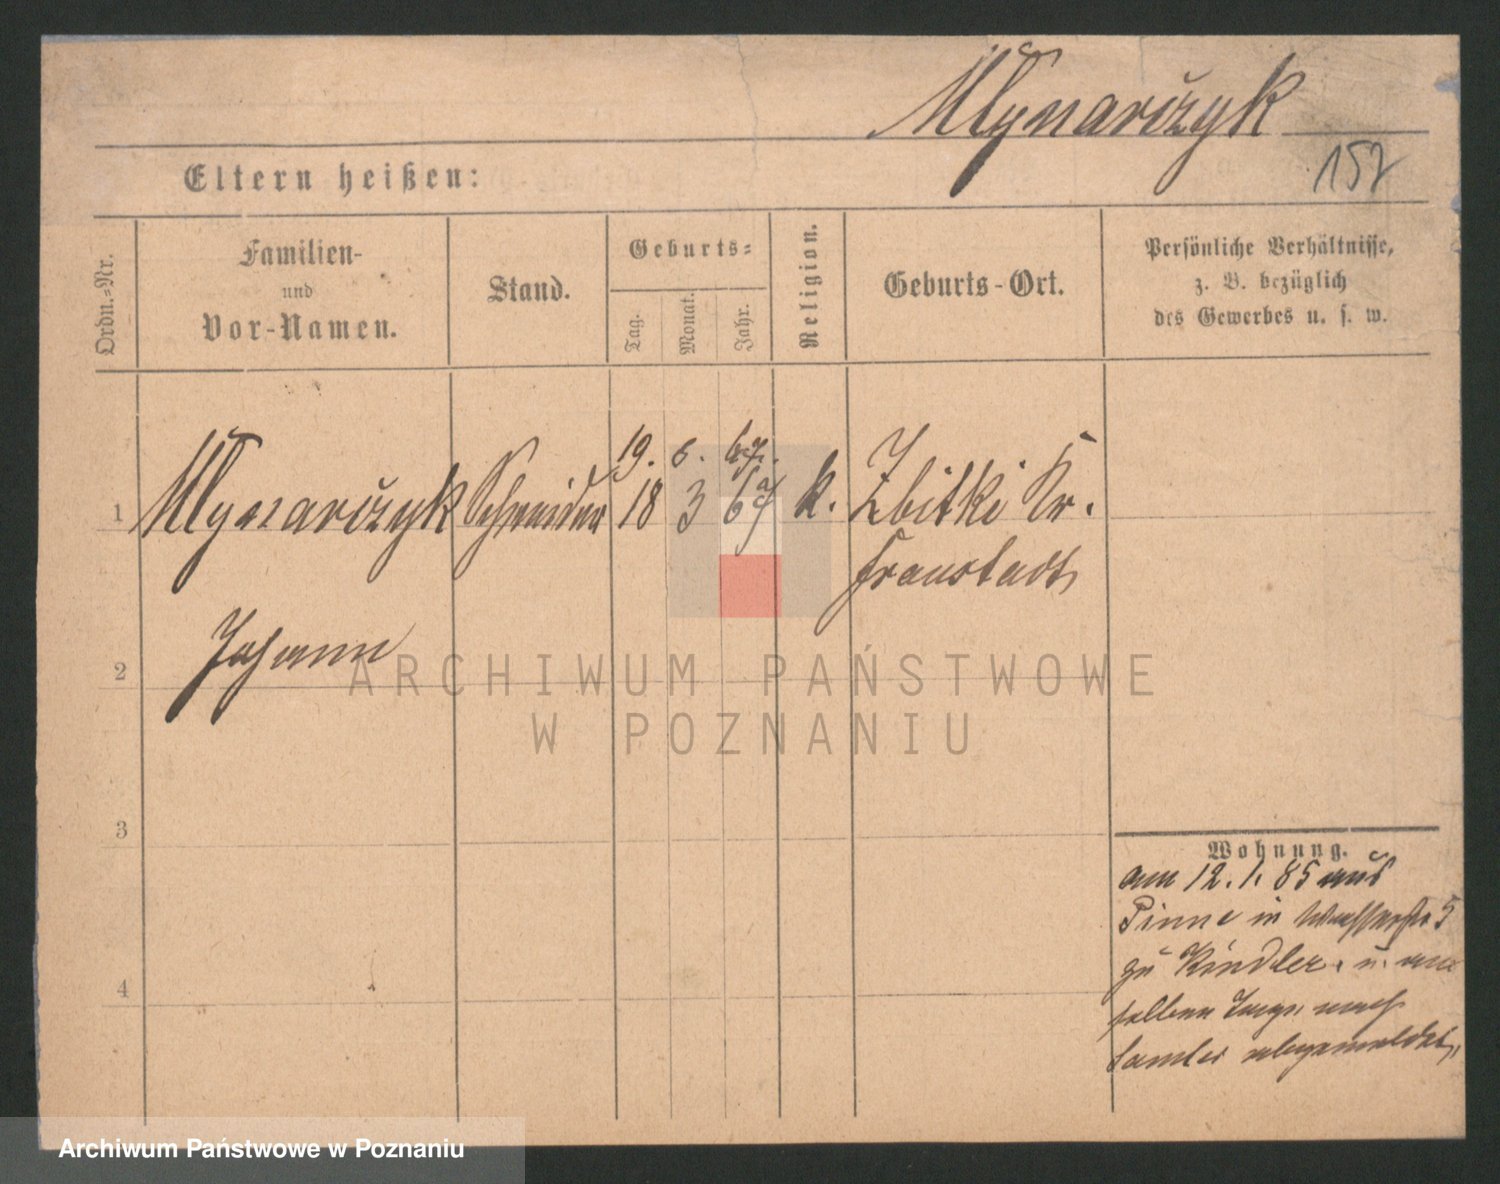 Mlynarčzyk
157
Eltern heißen:
Ordn.-Nr.
Familien-
und
Vor-Namen.
Stand.
Geburts-
Tag.
Monat.
Jahr.
Religion.
Geburts-Ort.
Persönliche Verhältnisse,
z. B. bezüglich
des Gewerbes u. s. w.
19.
1 Mlynarčzyk Schneider 18 3 69 k. Zbitki Kr.
Fraustadt,
Johann
2
3
4
Wohnung.
am 12.1.85 aus
Pinne in Wasserstr 5
zu Kindler. u. am
selben Tage nach
Samter abgemeldet,
ARCHIWUM PAŃSTWOWE
W POZNANIU
Archiwum Państwowe w Poznaniu